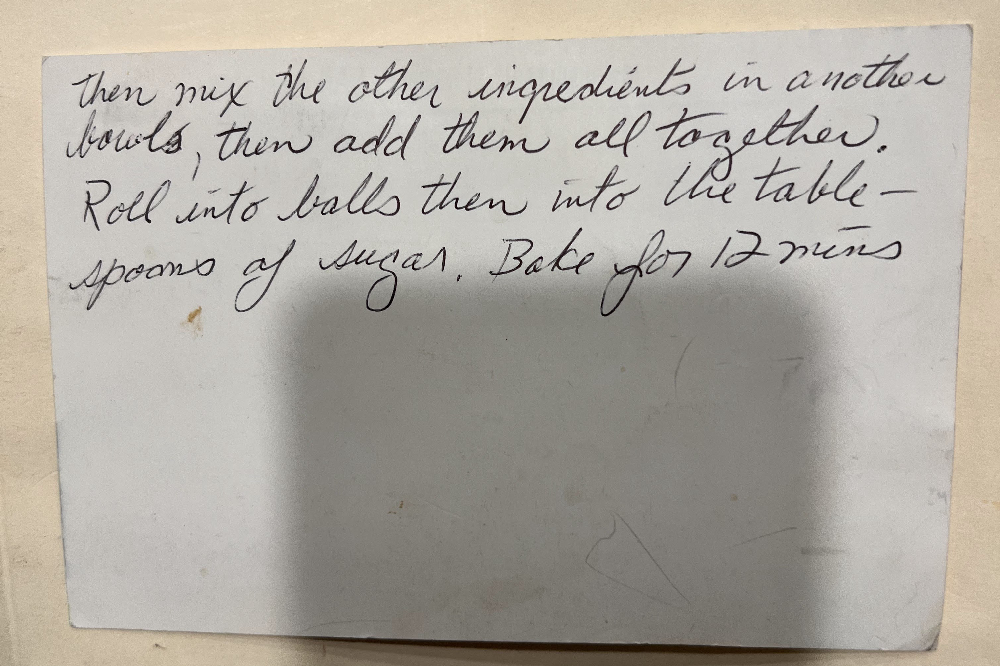 then mix the other ingredients in another
bowls, then add them all together.
Roll into balls then into the table-
spoons of sugar. Bake for 12 mins